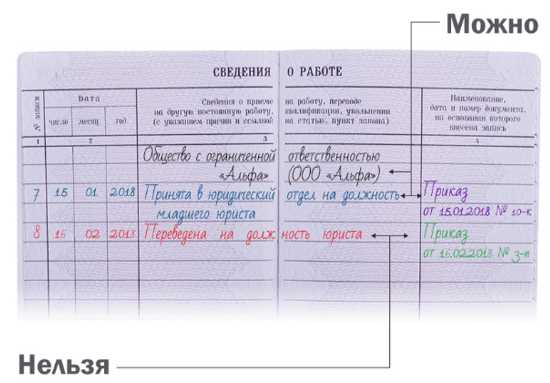 Можно
СВЕДЕНИЯ О РАБОТЕ
№ записи
Дата
число месяц год
Сведения о приеме на работу, переводе
на другую постоянную работу, квалификации, увольнении
(с указанием причин и ссылкой на статью, пункт закона)
Наименование,
дата и номер документа,
на основании которого
внесена запись
1 2 3 4
Общество с ограниченной ответственностью
«Альфа» (ООО «Альфа»)
7 15 01 2018 Принята в юридический отдел на должность Приказ
младшего юриста от 15.01.2018 № 10-к
8 15 02 2018 Переведена на должность юриста Приказ
от 15.02.2018 № 3-п
Нельзя